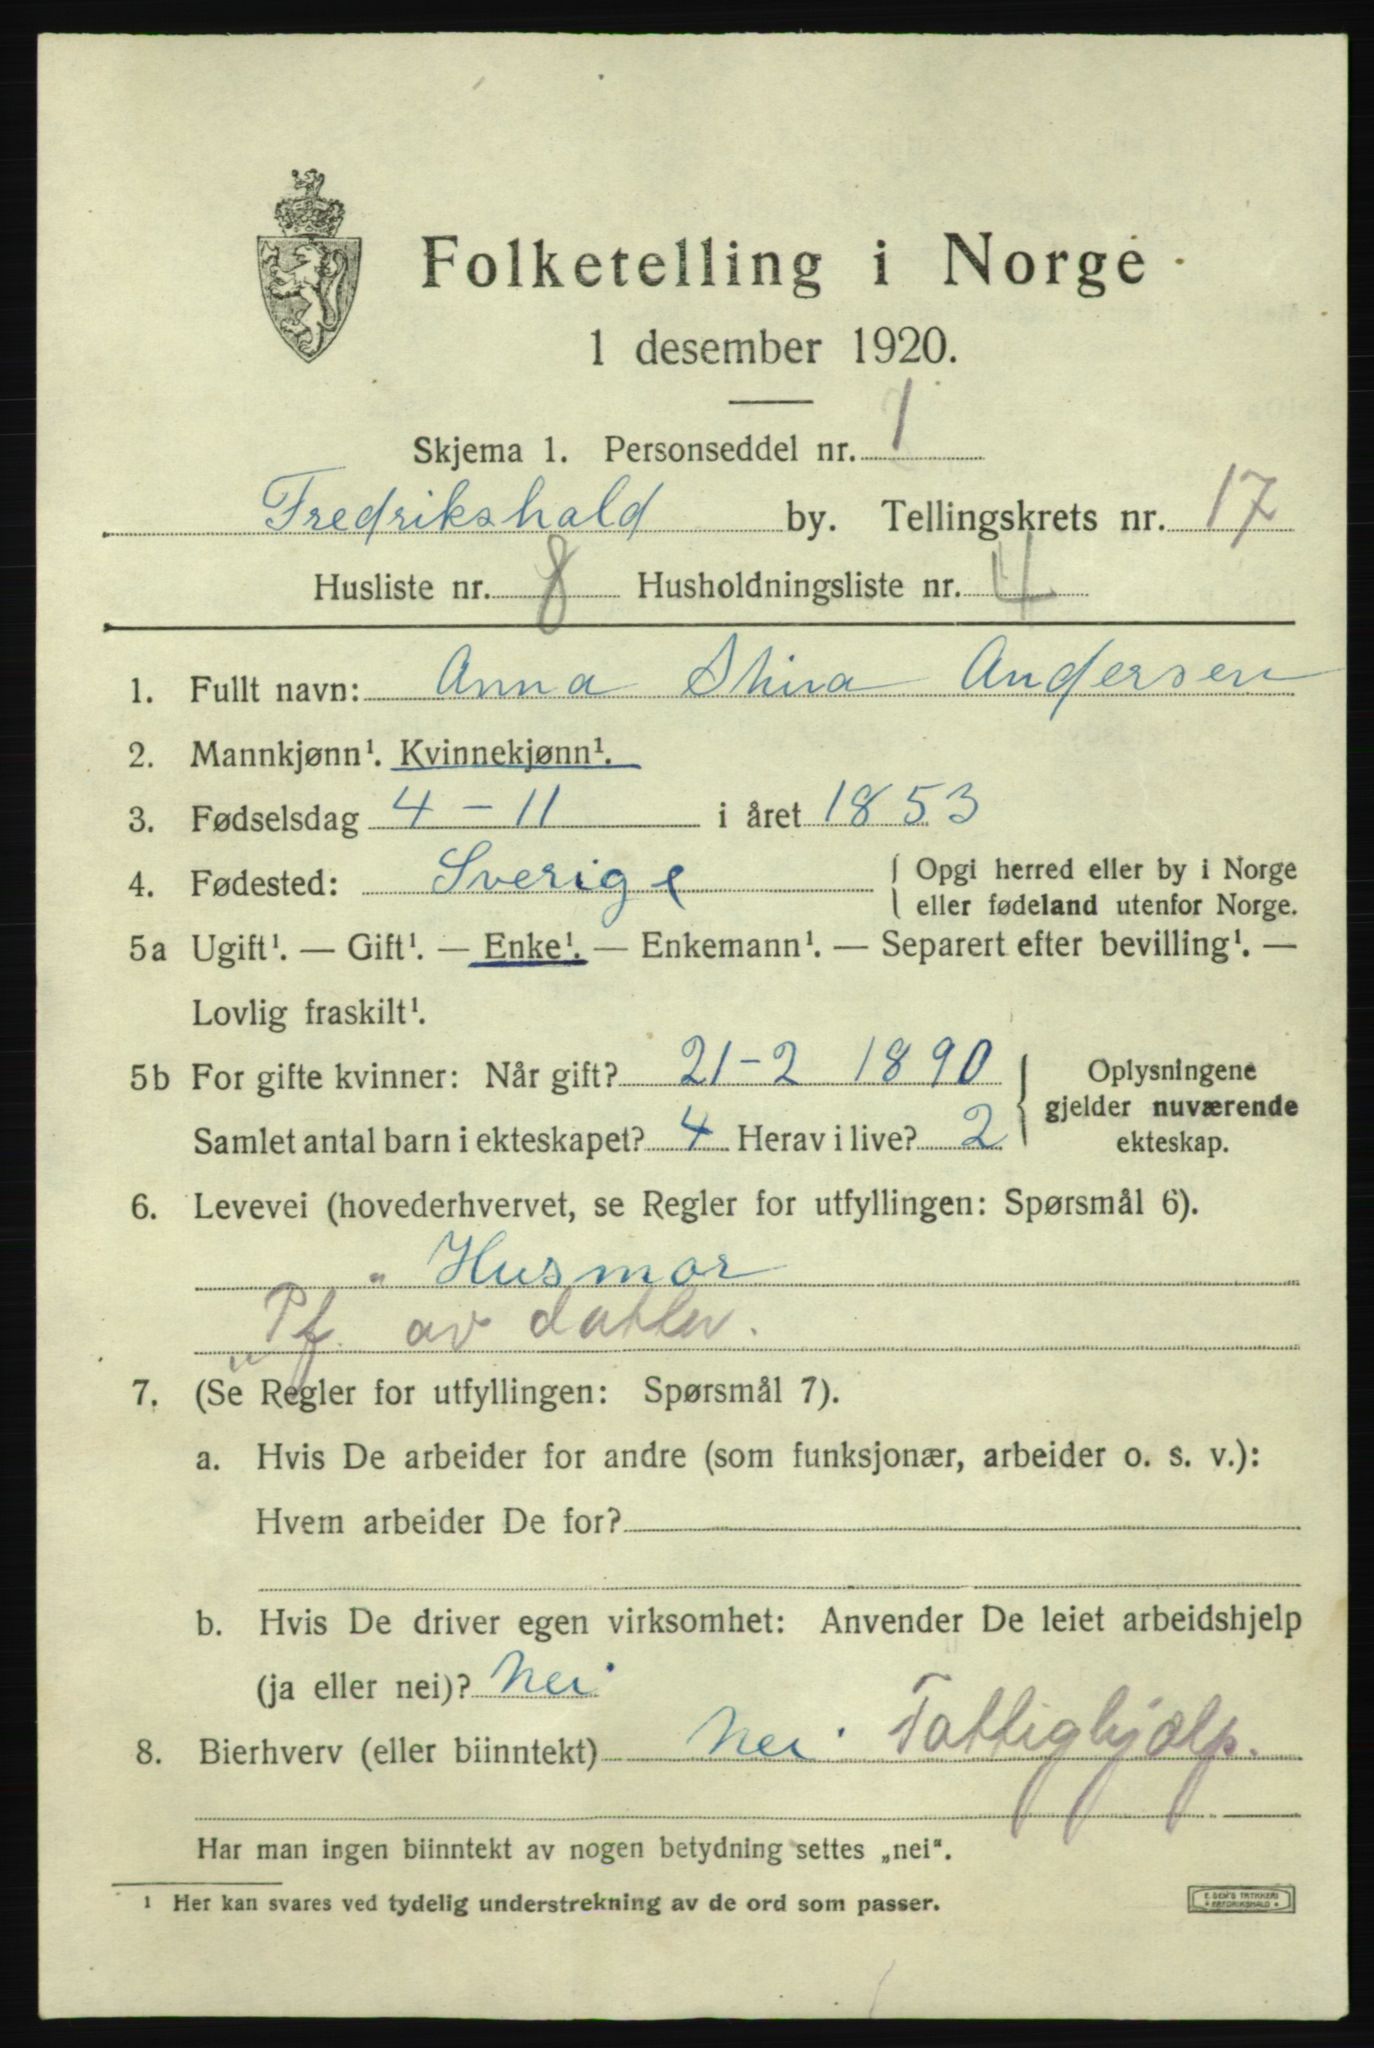 Folketelling i Norge
1 desember 1920.
Skjema 1. Personseddel nr. 1
Fredrikshald by. Tellingskrets nr. 17
Husliste nr. 8 Husholdningsliste nr. 4
1. Fullt navn: Anna Stina Andersen
2. Mannkjønn¹. Kvinnekjønn¹.
3. Fødselsdag 4 - 11 i året 1853
4. Fødested: Sverige { Opgi herred eller by i Norge
eller fødeland utenfor Norge.
5a Ugift¹. — Gift¹. — Enke¹. — Enkemann¹. — Separert efter bevilling¹. —
Lovlig fraskilt¹.
5b For gifte kvinner: Når gift? 21-2 1890
Samlet antal barn i ekteskapet? 4 Herav i live? 2
Oplysningene
gjelder nuværende
ekteskap.
6. Levevei (hovederhvervet, se Regler for utfyllingen: Spørsmål 6).
" Husmor
" Pf. av datter.
7. (Se Regler for utfyllingen: Spørsmål 7).
a. Hvis De arbeider for andre (som funksjonær, arbeider o. s. v.):
Hvem arbeider De for?
b. Hvis De driver egen virksomhet: Anvender De leiet arbeidshjelp
(ja eller nei)? Nei
8. Bierhverv (eller biinntekt) Nei. Fattighjælp.
Har man ingen biinntekt av nogen betydning settes „nei“.
1 Her kan svares ved tydelig understrekning av de ord som passer.